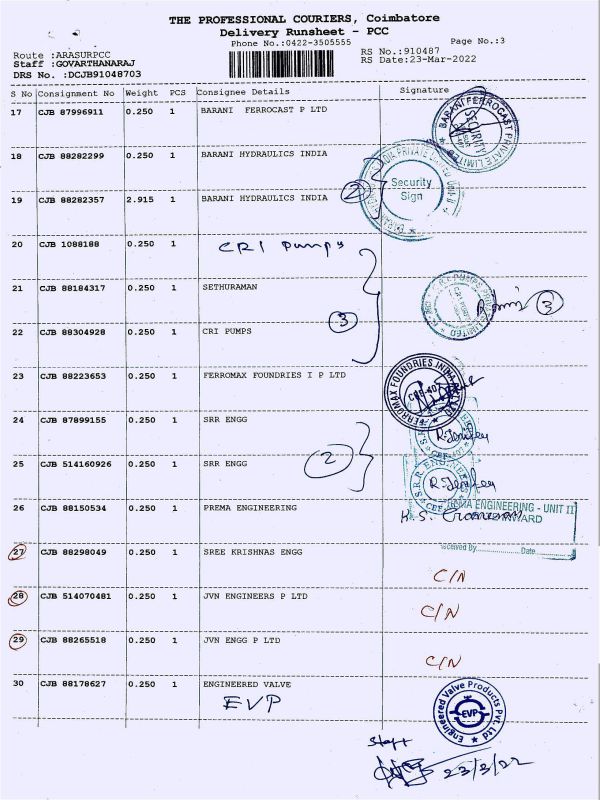 THE PROFESSIONAL COURIERS, Coimbatore
Delivery Runsheet - PCC
Phone No.:0422-3505555
Page No.:3
Route :ARASURPCC
Staff :GOVARTHANARAJ
DRS No. :DCJB91048703
RS No.:910487
RS Date:23-Mar-2022
S No Consignment No Weight PCS Consignee Details Signature
17 CJB 87996911 0.250 1 BARANI FERROCAST P LTD
BARANI FERROCAST PRIVATE LIMITED
SECURITY
18 CJB 88282299 0.250 1 BARANI HYDRAULICS INDIA
Security
Sign
2
19 CJB 88282357 2.915 1 BARANI HYDRAULICS INDIA
20 CJB 1088188 0.250 1 CRI Pumps
21 CJB 88184317 0.250 1 SETHURAMAN
3
3
22 CJB 88304928 0.250 1 CRI PUMPS
23 CJB 88223653 0.250 1 FERROMAX FOUNDRIES I P LTD
24 CJB 87899155 0.250 1 SRR ENGG
2
25 CJB 514160926 0.250 1 SRR ENGG
26 CJB 88150534 0.250 1 PREMA ENGINEERING
ENGINEERING - UNIT II
27 CJB 88298049 0.250 1 SREE KRISHNAS ENGG
Date
C/N
28 CJB 514070481 0.250 1 JVN ENGINEERS P LTD
C/N
29 CJB 88265518 0.250 1 JVN ENGG P LTD
C/N
30 CJB 88178627 0.250 1 ENGINEERED VALVE
EVP
Engineered Valve Products Pvt. Ltd
EVP
Staff
23/3/22